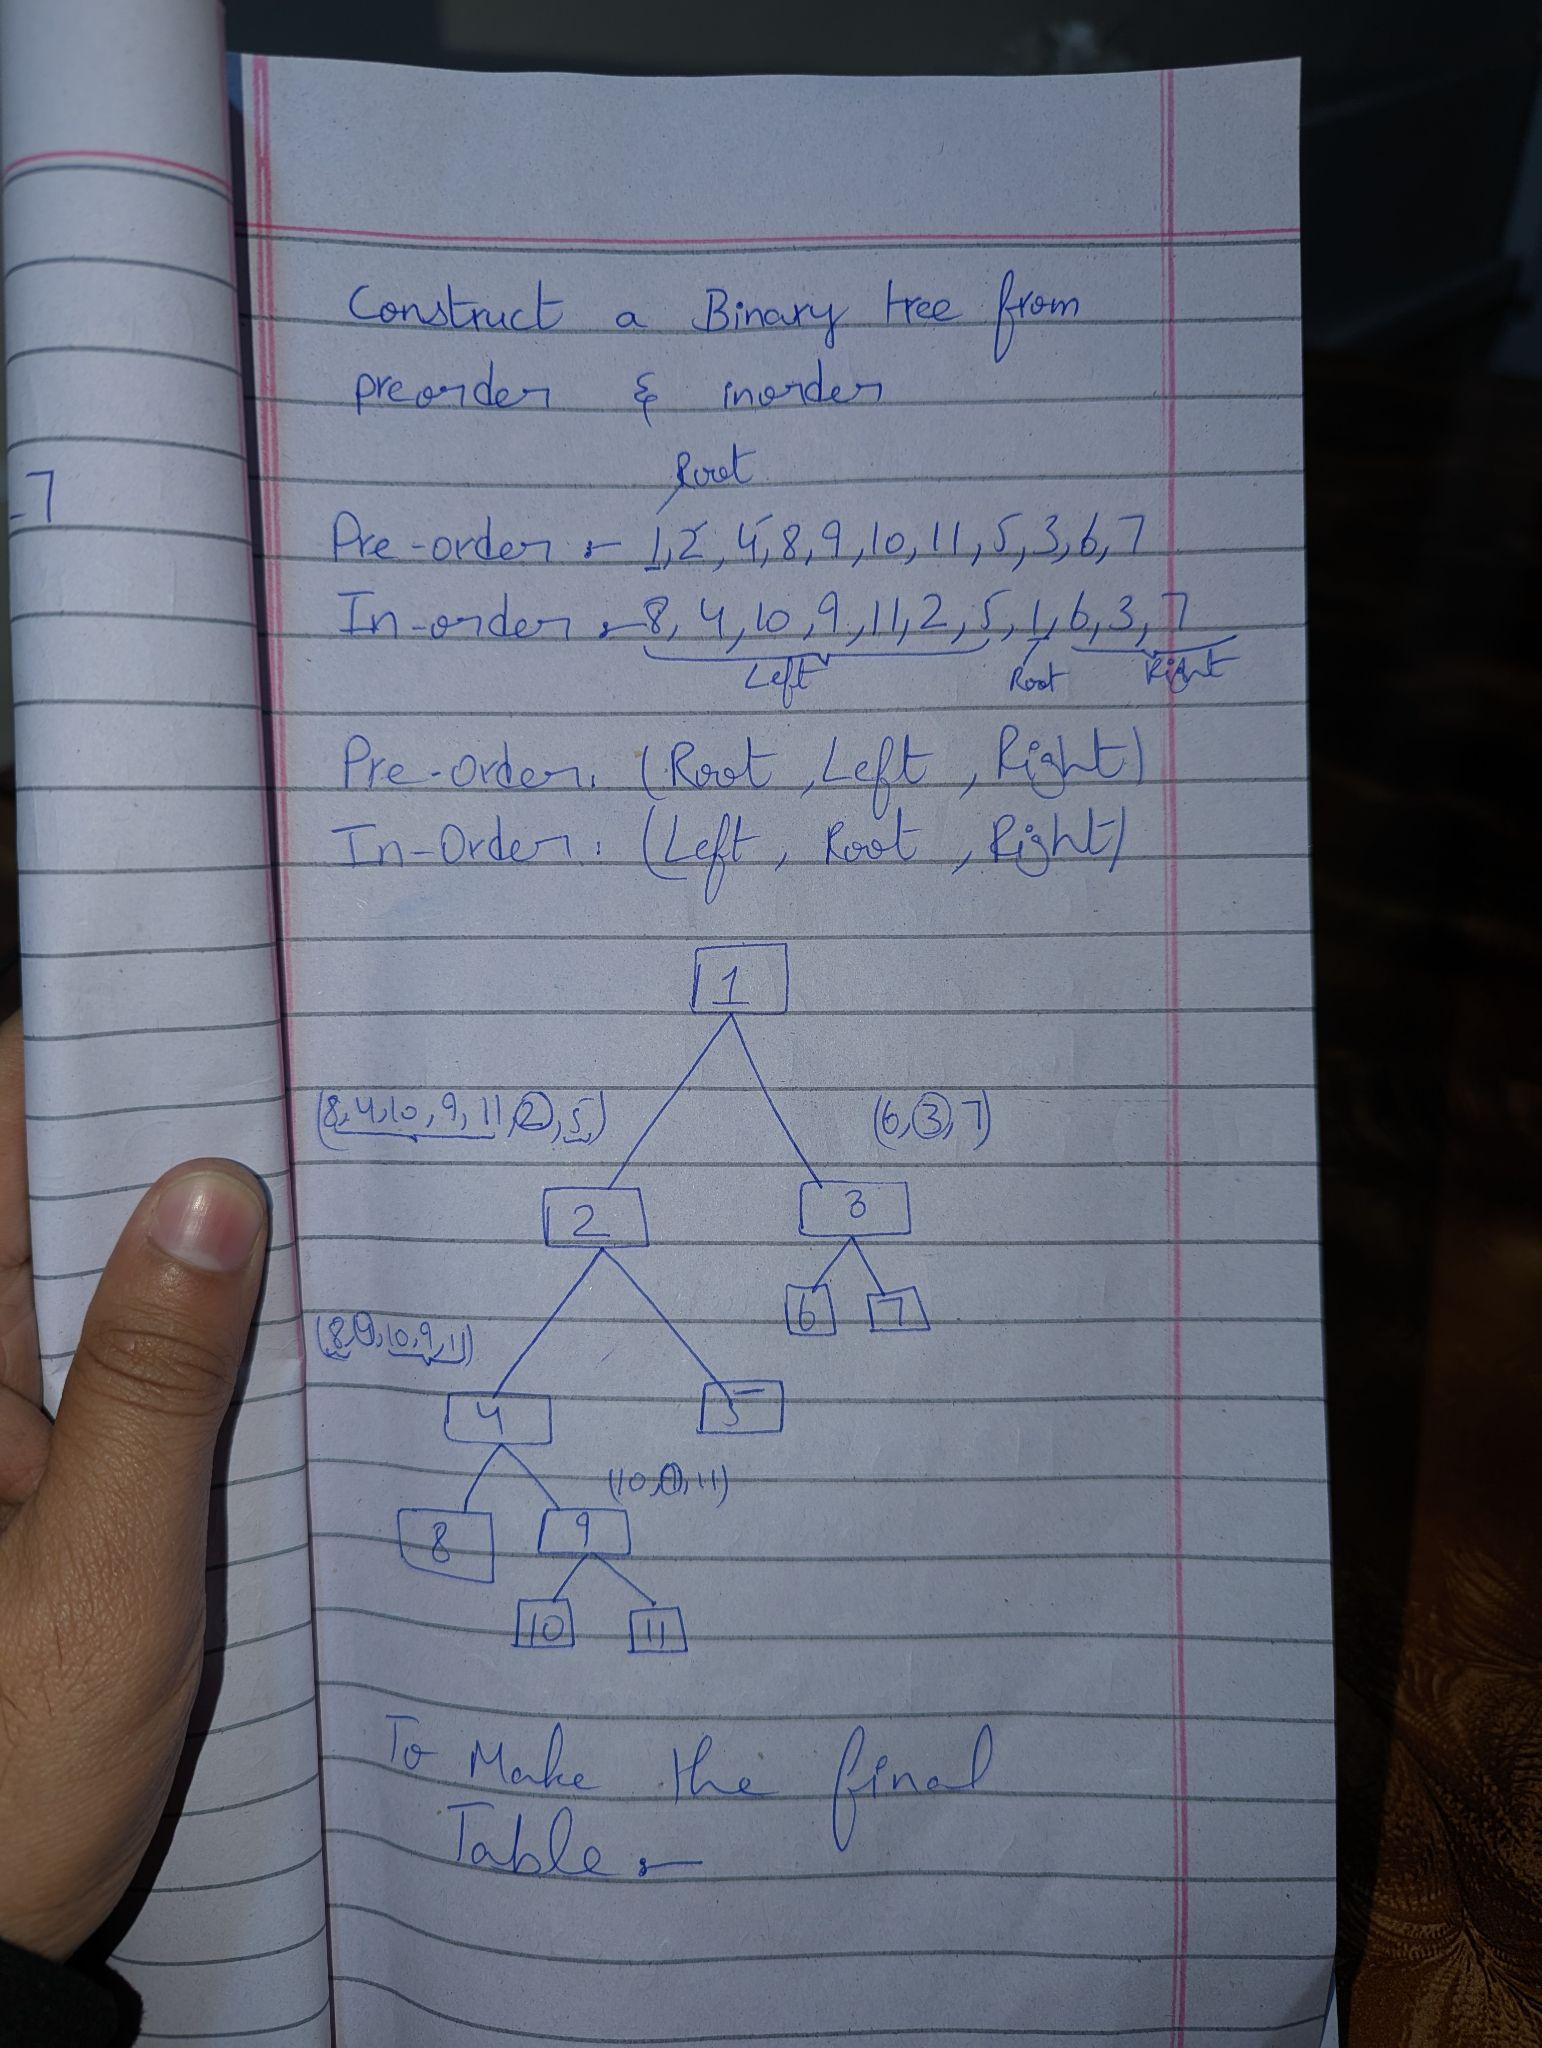 Construct a Binary tree from
preorder & inorder
Root
Pre-order :- 1,2,4,8,9,10,11,5,3,6,7
In-order :- 8,4,10,9,11,2,5,1,6,3,7
Left Root Right
Pre-Order: (Root, Left, Right)
In-Order: (Left, Root, Right)
1
(8,4,10,9,11,2,5) (6,3,7)
2 3
6 7
(8, 10,9,11)
4 5
(10, 11)
8 9
10 11
To Make the final
Table :-
7